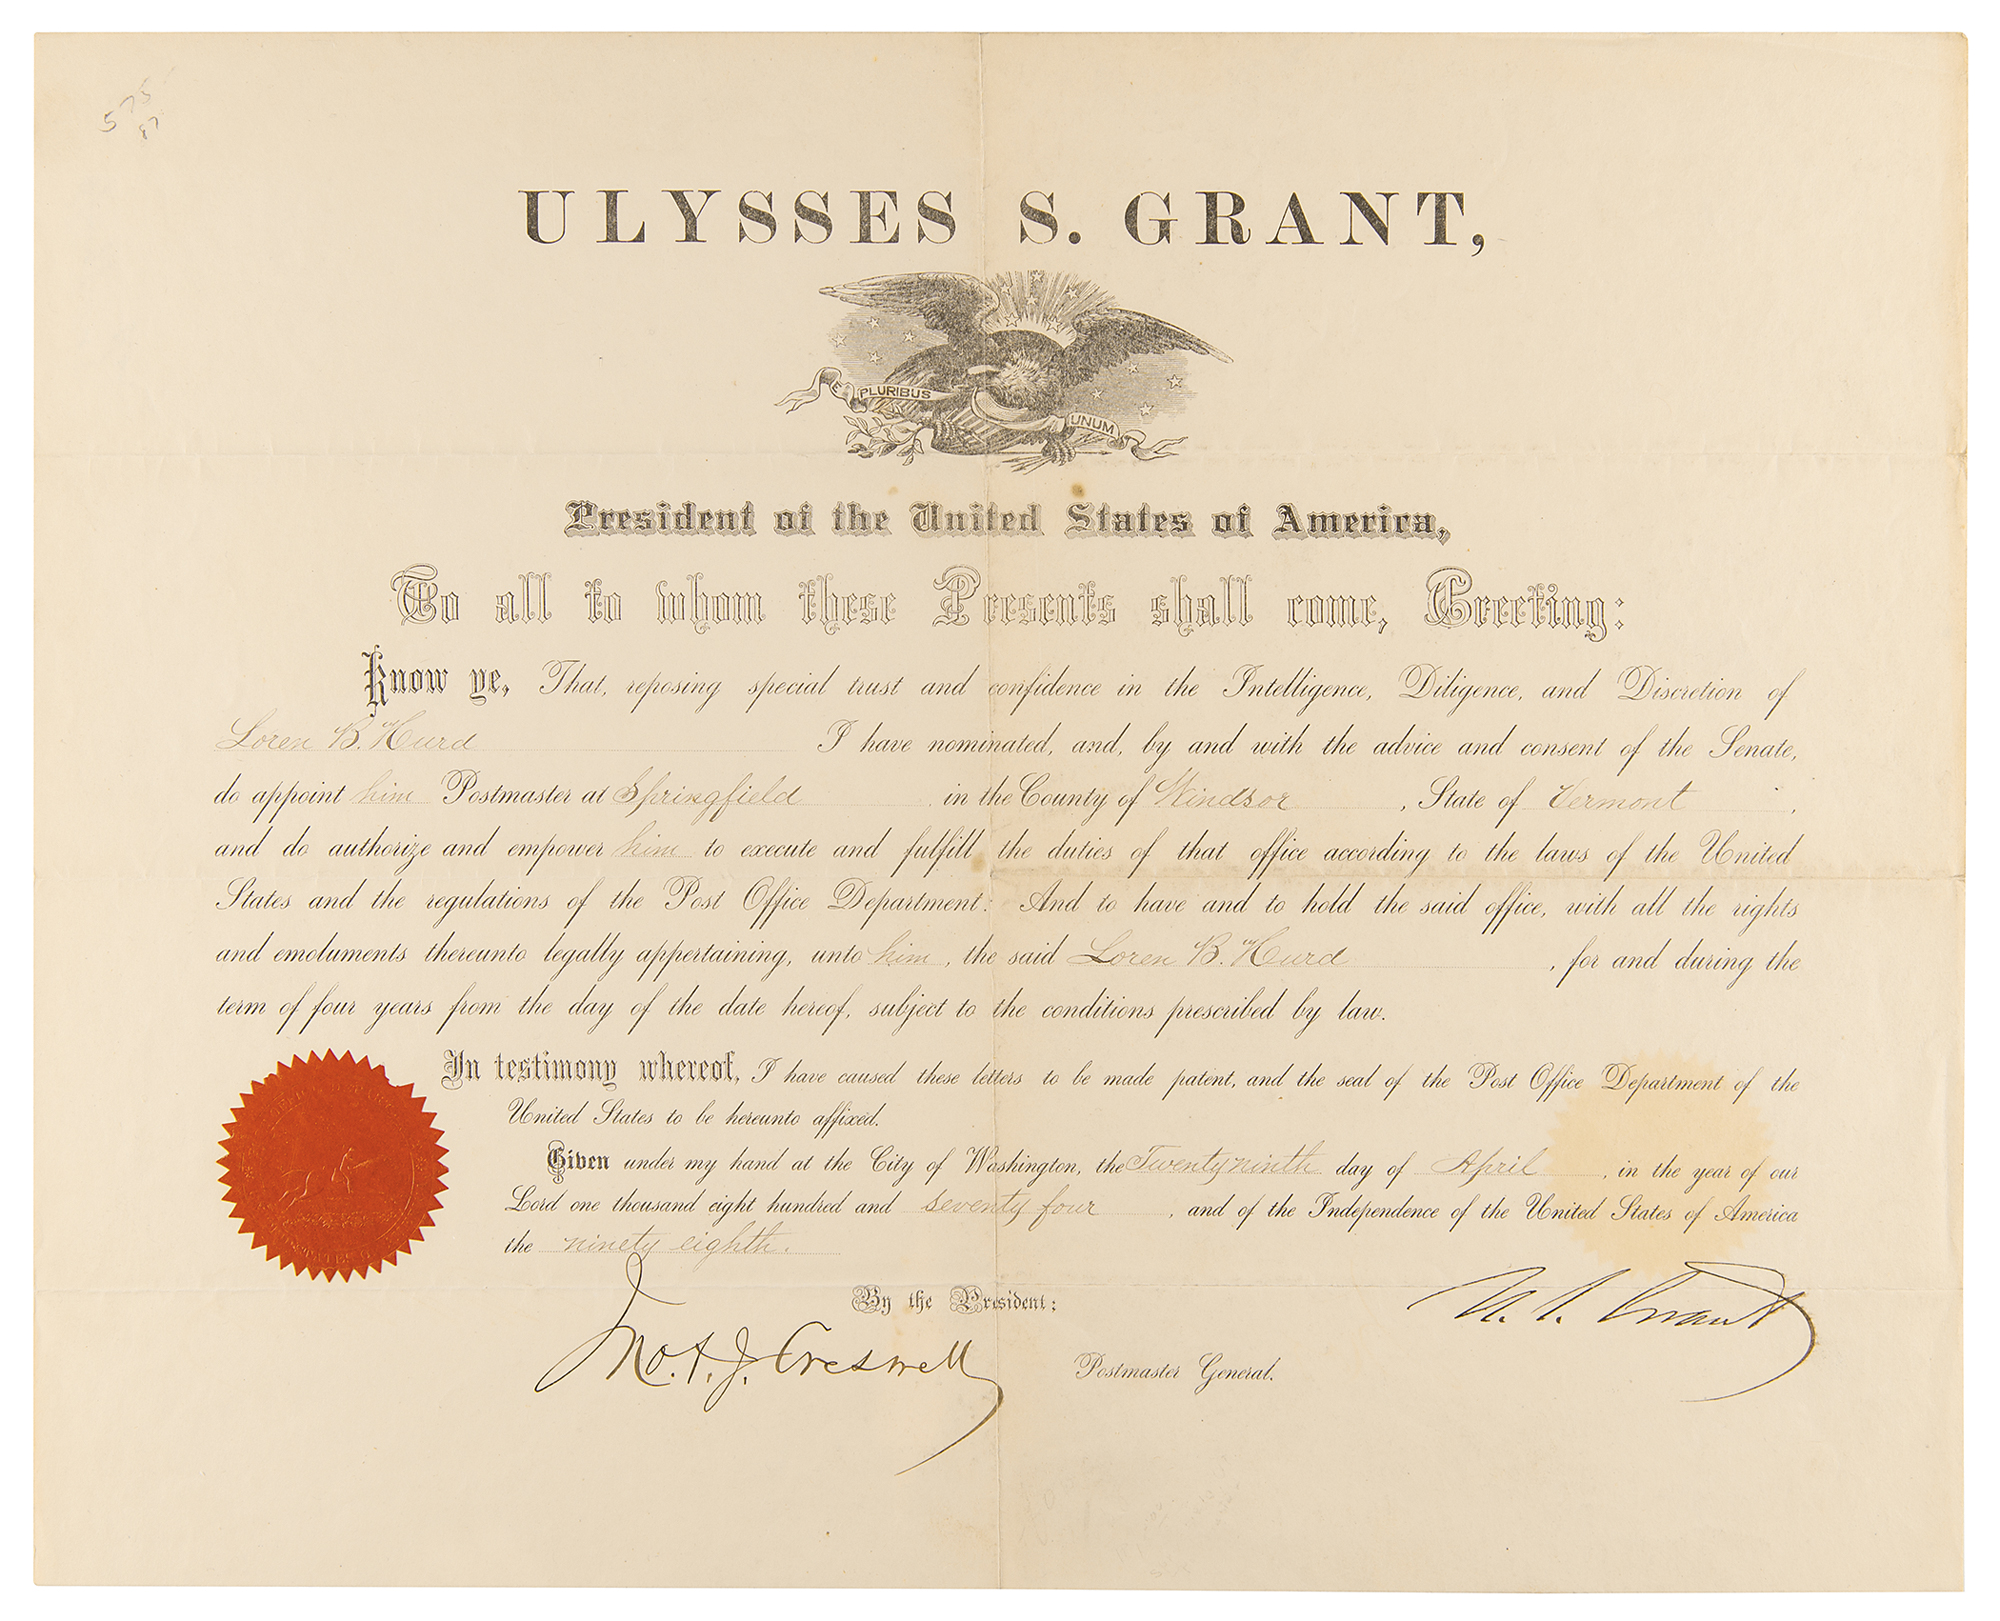 575
87
ULYSSES S. GRANT,
E PLURIBUS UNUM
President of the United States of America,
To all to whom these Presents shall come, Greeting:
Know ye, That, reposing special trust and confidence in the Intelligence, Diligence, and Discretion of
Loren B. Hurd I have nominated, and, by and with the advice and consent of the Senate,
do appoint him Postmaster at Springfield in the County of Windsor, State of Vermont,
and do authorize and empower him to execute and fulfill the duties of that office according to the laws of the United
States and the regulations of the Post Office Department: And to have and to hold the said office, with all the rights
and emoluments thereunto legally appertaining, unto him, the said Loren B. Hurd, for and during the
term of four years from the day of the date hereof, subject to the conditions prescribed by law.
In testimony whereof, I have caused these letters to be made patent, and the seal of the Post Office Department of the
United States to be hereunto affixed.
Given under my hand at the City of Washington, the Twenty ninth day of April, in the year of our
Lord one thousand eight hundred and seventy four, and of the Independence of the United States of America
the ninety eighth.
U. S. Grant
By the President:
Jno. A. J. Creswell
Postmaster General.